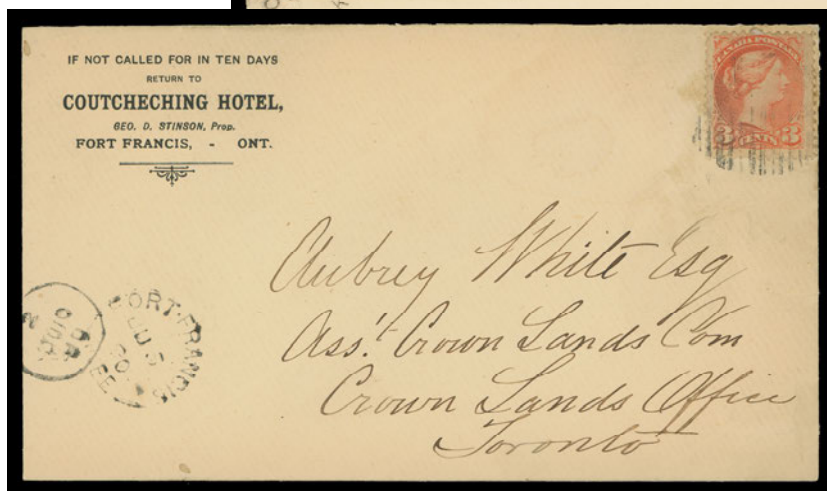 IF NOT CALLED FOR IN TEN DAYS
RETURN TO
COUTCHECHING HOTEL,
GEO. D. STINSON, Prop.
FORT FRANCIS, - ONT.
3 CENTS 3
Aubrey White Esq
Ass.t Crown Lands Com
Crown Lands Office
Toronto
FORT-FRANCIS